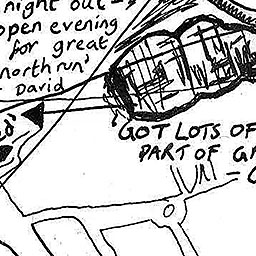 night out -
open evening
for great
north run'
- David
GOT LOTS OF
PART OF